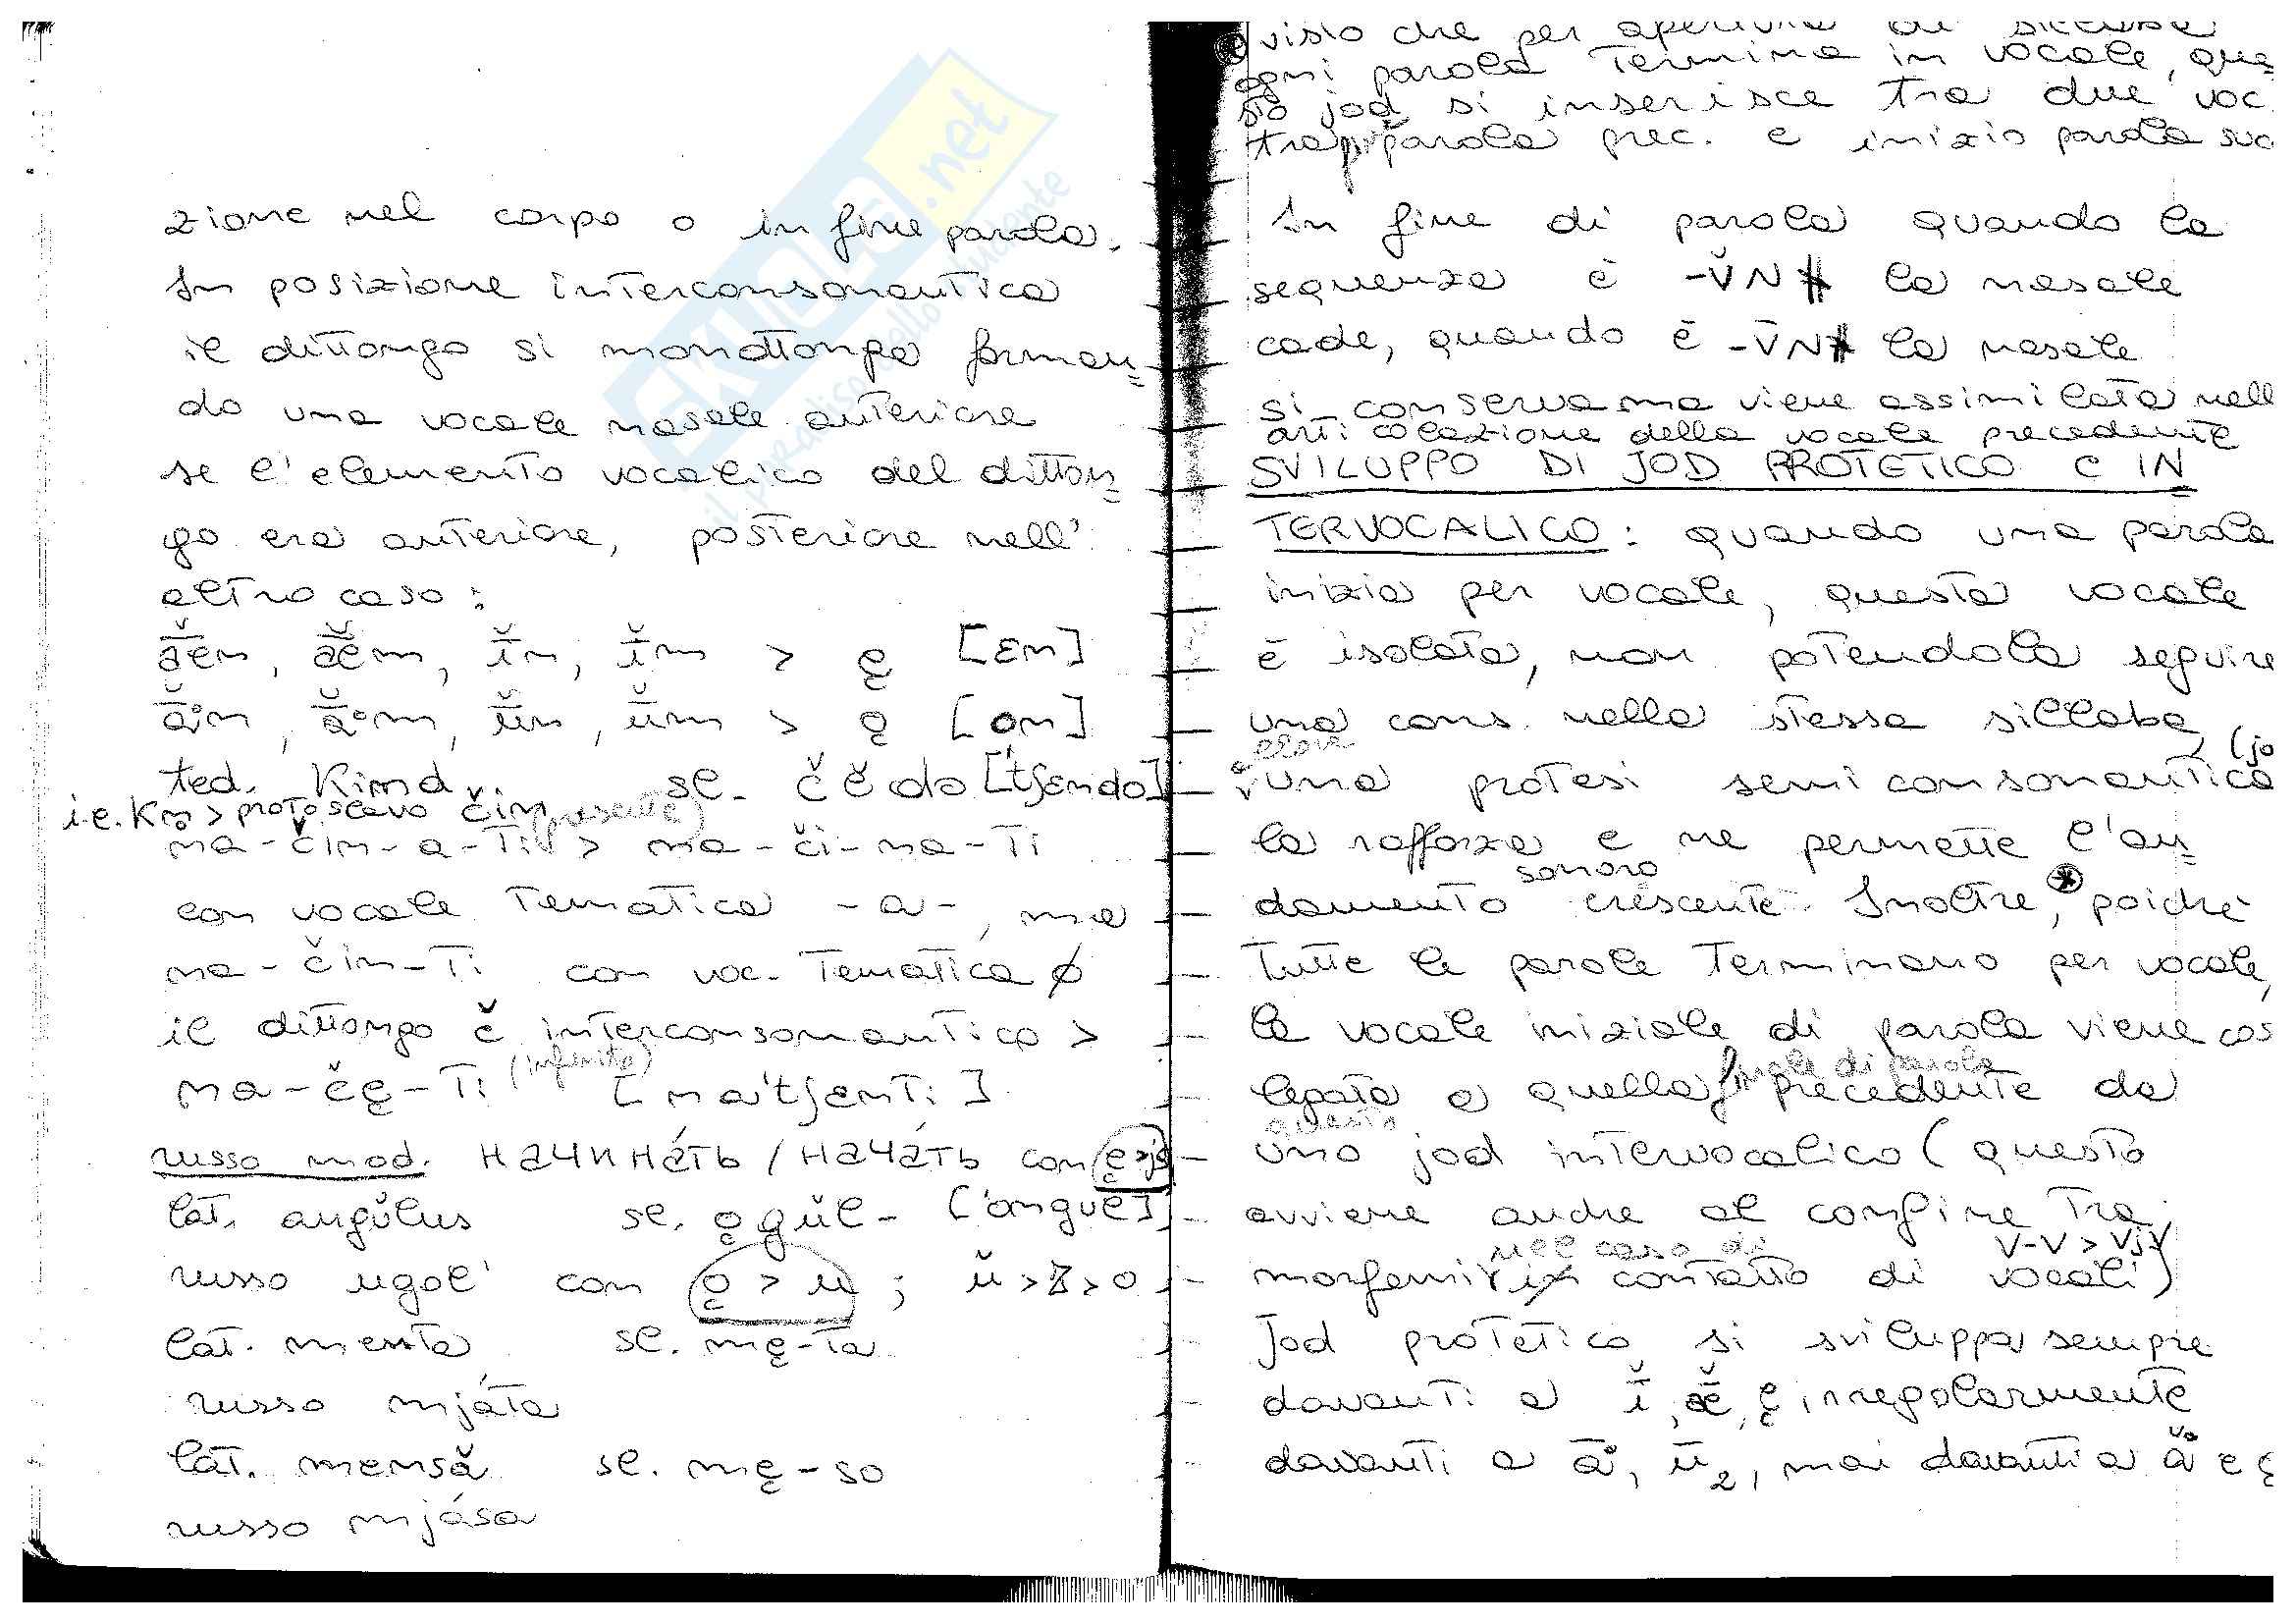 zione nel corpo o in fine parola.
In posizione interconsonantica
il dittongo si monottonga forman=
do una vocale nasale anteriore
se l'elemento vocalico del ditton=
go era anteriore, posteriore nell'
altro caso:
[ɛn]
[on]
ted. Kind sl. čędo [tʃɛndo]
i.e. Kṇ > protoslavo čin (presente)
na-čin-a-Ti > na-či-na-Ti
con vocale Tematica -a-, ma
na-čin-Ti con voc. Tematica ø
il dittongo č interconsonantico >
na-čę-Ti (infinito) [na'tʃenti]
russo mod. НАЧИНáТЬ / НАЧáТЬ con ę>ja
lat. angŭlus sl. ǫgŭl- ['ongul]
russo ugol' con ǫ > u ; ŭ > ъ > o
lat. menta sl. mę-ta
russo mjáta
lat. mensă sl. mę-so
russo mjáso
visto che per apertura di sillaba
ogni parola Termina in vocale, que=
sto jod si inserisce tra due voc
tra parola prec. e inizio parola suc
In fine di parola quando la
sequenza è -V̆N# la nasale
cade, quando è -V̄N# la nasale
si conserva ma viene assimilata nell
articolazione della vocale precedente
SVILUPPO DI JOD PROTETICO E IN=
TERVOCALICO: quando una parola
inizia per vocale, questa vocale
è isolata, non potendola seguire
una cons. nella stessa sillaba,
una protesi semiconsonantica (jo
la rafforza e ne permette l'an=
damento sonoro crescente. Inoltre, poiché
Tutte le parole Terminano per vocale,
la vocale iniziale di parola viene cos
legata a quella finale di parola precedente da
questo
uno jod intervocalico (questo
avviene anche al confine Tra
morfemi nel caso di contatto di vocali) V-V > VjV
Jod protetico si sviluppa sempre
davanti a ī̆, ǣ̆, ę, irregolarmente
davanti a ā°, ū₂, mai davanti a ă° e ǫ